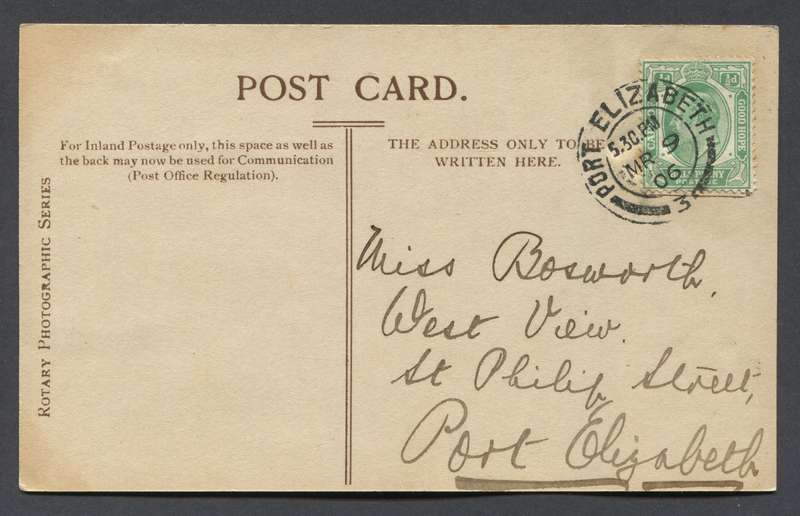 POST CARD.
For Inland Postage only, this space as well as
the back may now be used for Communication
(Post Office Regulation).
THE ADDRESS ONLY TO BE
WRITTEN HERE.
ROTARY PHOTOGRAPHIC SERIES
½d
GOOD HOPE
HALFPENNY
POSTAGE
PORT ELIZABETH
5.30.PM
MR 9
06
3
Miss Bosworth,
West View.
St Philip Street,
Port Elizabeth